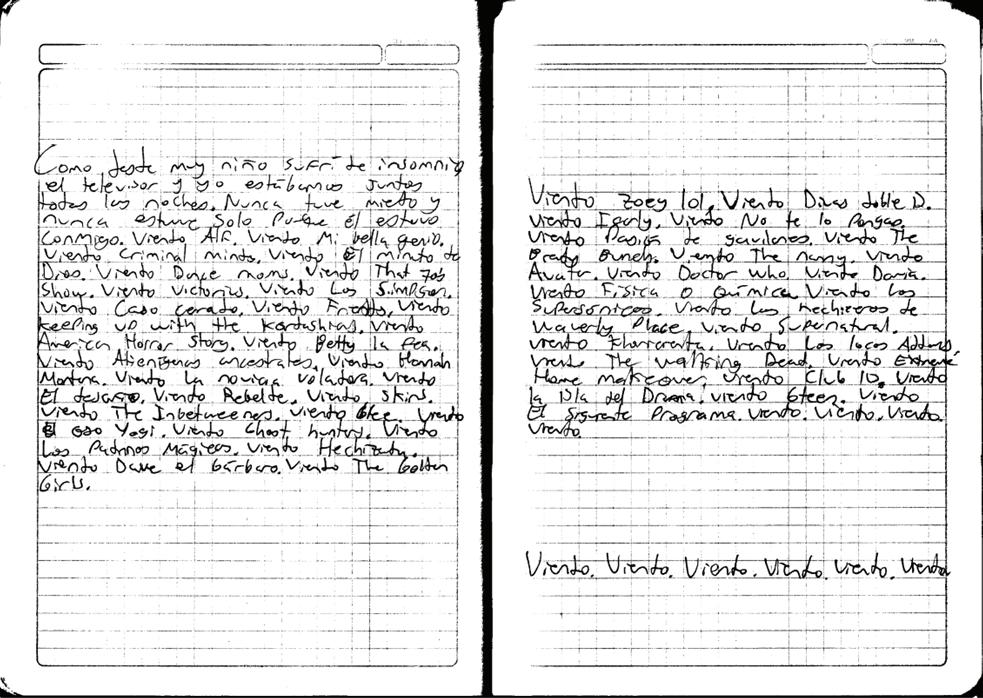 Como desde muy niño sufrí de insomnio
el televisor y yo estábamos juntos
todas las noches. Nunca tuve miedo y
nunca estuve solo porque él estuvo
conmigo. Viendo Alf. Viendo Mi bella genio.
Viendo Criminal minds. Viendo El minuto de
Dios. Viendo Dance moms. Viendo That 70s
Show. Viendo Victorius. Viendo Los Simpson.
Viendo Caso cerrado. Viendo Friends. Viendo
keeping up with the Kardashians. Viendo
American Horror Story. Viendo Betty la fea.
Viendo Alienígenas ancestrales. Viendo Hannah
Montana. Viendo La novicia voladora. Viendo
El desafío. Viendo Rebelde. Viendo Skins.
Viendo The Inbetweeners. Viendo Glee. Viendo
El oso Yogi. Viendo Ghost hunters. Viendo
Los Padrinos Mágicos. Viendo Hechizada.
Viendo Dave el bárbaro. Viendo The Golden
Girls.
Viendo Zoey 101. Viendo Divas doble D.
Viendo Icarly. Viendo No te lo Pongas.
Viendo Pasión de gavilanes. Viendo The
Brady Bunch. Viendo The nanny. Viendo
Avatar. Viendo Doctor Who. Viendo Daria.
Viendo Física o Química. Viendo Los
Supersónicos. Viendo Los hechiceros de
Waverly Place. Viendo Supernatural.
Viendo Floricienta. Viendo Los locos Addams.
Viendo The Walking Dead. Viendo Extreme
Home makeover. Viendo Club 10. Viendo
la isla del Drama. Viendo 6teen. Viendo
El Siguiente Programa. Viendo. Viendo. Viendo.
Viendo.
Viendo. Viendo. Viendo. Viendo. Viendo. Viendo